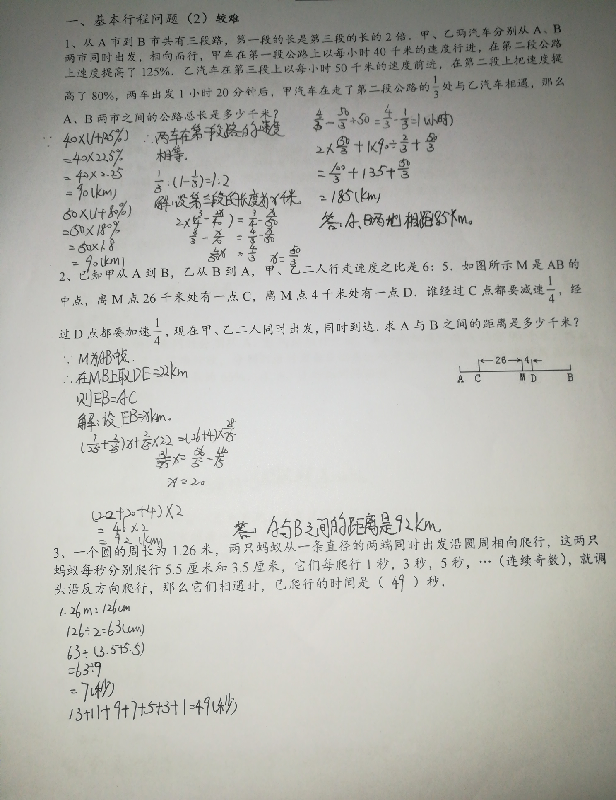 一、基本行程问题（2）较难
1、从A市到B市共有三段路，第一段的长是第三段的长的2倍．甲、乙两汽车分别从A、B
两市同时出发，相向而行，甲车在第一段公路上以每小时40千米的速度行进，在第二段公路
上速度提高了125%．乙汽车在第三段上以每小时50千米的速度前进，在第二段上把速度提
高了80%，两车出发1小时20分钟后，甲汽车在走了第二段公路的1/3处与乙汽车相遇，那么
A、B两市之间的公路总长是多少千米？
40×(1+125%)
=40×225%
=40×2.25
=90(km)
50×(1+80%)
=50×180%
=50×1.8
=90(km)
∴两车在第二段路的速度
相等．
1/3:(1-1/3)=1:2
解：设第三段的长度为x千米．
x=50/3
4/3-50/3÷50=4/3-1/3=1(小时)
2×50/3+1×90÷2/3+50/3
=100/3+135+50/3
=185(km)
答：A、B两地相距185km.
2、已知甲从A到B，乙从B到A，甲、乙二人行走速度之比是6：5．如图所示M是AB的
中点，离M点26千米处有一点C，离M点4千米处有一点D．谁经过C点都要减速1/4，经
过D点都要加速1/4，现在甲、乙二人同时出发，同时到达．求A与B之间的距离是多少千米？
26 4
A C M D B
∴在MB上取DE=22km
则EB=AC
解：设EB=xkm．
x=20
(22+20+4)×2
=46×2
=92(km)
答：A与B之间的距离是92km.
3、一个圆的周长为1.26米，两只蚂蚁从一条直径的两端同时出发沿圆周相向爬行，这两只
蚂蚁每秒分别爬行5.5厘米和3.5厘米，它们每爬行1秒，3秒，5秒，…（连续奇数），就调
头沿反方向爬行，那么它们相遇时，已爬行的时间是（ 49 ）秒．
1.26m=126cm
126÷2=63(cm)
63÷(3.5+5.5)
=63÷9
=7(秒)
13+11+9+7+5+3+1=49(秒)